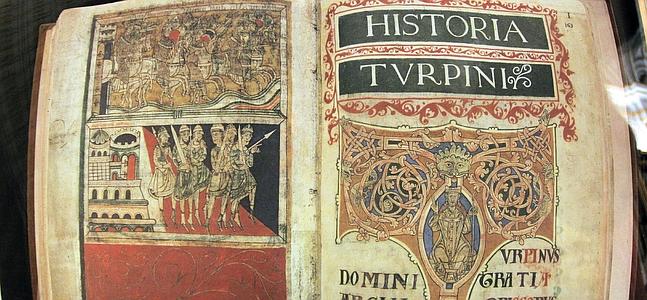 I
163
HISTORIA
TVRPINI
URPINUS
DOMINI GRATIA